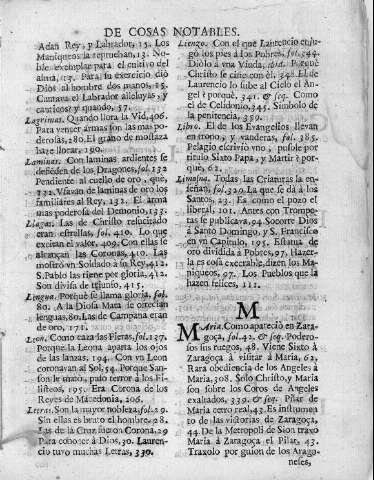 DE COSAS NOTABLES.
Adan Rey, y Labrador, 15. Los
Maniqueos la reprueban, 13. No-
ble exemplar para el cultivo del
alma, 17. Para su exercicio diò
Dios al hombre dos manos, 15.
Cantava el Labrador alleluyas, y
canticos? y quando, 57.
Lagrimas. Quando llora la Vid, 406.
Para vencer armas son las mas po-
derosas, 280. El grano de mostaza
haze llorar, 190.
Laminas. Con laminas ardientes se
defiẽden de los Dragones, fol. 132
Pendiente al cuello de oro, que,
132. Vsavan de laminas de oro los
familiares al Rey, 132. El arma
mas poderosa del Demonio, 133.
Llagas. Las de Christo resucitado
eran estrellas, fol. 410. Lo que
exceian el valor, 409. Con ellas se
alcançan las Coronas, 410. Las
mostrò vn Soldado à su Rey, 412.
S. Pablo las tiene por gloria, 412.
Son divisa de triunfo, 415.
Lengua. Porquè se llama gloria, fol.
80. A la Diosa Mata de ofrecian
lenguas, 80. Las de Campana eran
de oro, 171.
Leon. Como caza las Fieras, fol. 137.
Porque la Leona aparta los ojos
de las lanzas, 194. Con vn Leon
coronavan al Sol, 54. Porque San-
son le matò, puso terror à los Fi-
listeos, 195. Era Corona de los
Reyes de Macedonia, 206.
Letras. Son la mayor nobleza, fol. 29.
Sin ellas es bruto el hombre, 28.
Las de la Cruz fueron Corona, 29
Para conocer à Dios, 30. Lauren-
cio tuvo muchas Letras, 339.
Lienzo. Con el que Laurencio enju-
gò los pies à los Pobres, fol. 344.
Diòlo à vna Viuda, ibid. Porquè
Christo se ciñe con èl, 348. El de
Laurencio lo sube al Cielo el An-
gel? porquè, 341. & seq. Como
el de Celidonio, 345. Simbolo de
la penitencia, 350.
Libro. El de los Evangelios llevan
en trono, y vanderas, fol. 385.
Pelagio escriviò vno, y pusole por
titulo Sixto Papa, y Martir? por-
què, 62.
Limosna. Todas las Criaturas la en-
señan, fol. 320. La que se dà à los
Santos, 23. Es como el pozo el
liberal, 101. Antes con Trompe-
tas se publicava, 94. Socorre Dios
à Santo Domingo, y S. Francisco
en vn Capitulo, 195. Estatua de
oro dividida à Pobres, 97. Hazer-
la es cosa execrable, dizen los Ma-
niqueos, 97. Los Pueblos que la
hazen felices, 112.
M
MAria. Como apareciò en Zara-
goça, fol. 42. & seq. Podero-
sos sus ruegos, 48. Viene Sixto à
Zaragoça à visitar à Maria, 62,
Rara obediencia de los Angeles à
Maria, 308. Solo Christo, y Maria
son sobre los Coros de Angeles
exaltados, 339. & seq. Pilar de
Maria cetro real, 43. Es instrumen-
to de las victorias de Zaragoça,
44. De la Metropoli de Sion traxo
Maria à Zaragoça el Pilar, 43.
Traxolo por guion de los Arago-
neses,